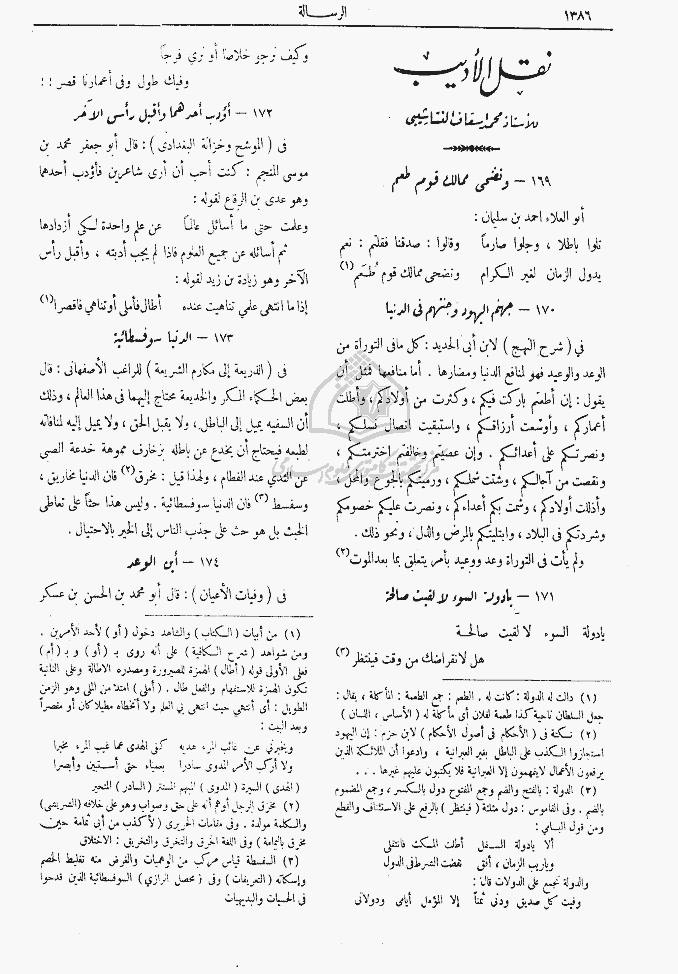 ١٣٨٦
الرسالة
نقل الأديب
للأستاذ محمد إسعاف النشاشيبي
١٦٩ – وتضحى ممالك قوم طعم
أبو العلاء احمد بن سليمان :
تلوا باطلا ، وجلوا صارماً وقالوا : صدقنا فقلتم : نعم
يدول الزمان لغير الكرام وتضحى ممالك قوم طُعَم (١)
١٧٠ – جهنم اليهود وجنتهم فى الدنيا
في ( شرح النهج ) لابن أبى الحديد : كل مافى التوراة من
الوعد والوعيد فهو لمنافع الدنيا ومضارها . أما منافعها فمثل أن
يقول : إن أطعتم باركت فيكم ، وكثرت من أولادكم ، وأطلت
أعماركم ، وأوسعت أرزاقكم ، واستبقيت اتصال نسلكم ،
ونصرتكم على أعدائكم . وإن عصيتم وخالفتم اخترمتكم ،
ونقصت من آجالكم ، وشتت شملكم ، ورميتكم بالجوع والمحل ،
وأذللت أولادكم ، وشمت بكم أعداءكم ، ونصرت عليكم خصومكم
وشردتكم فى البلاد ، وابتليتكم بالمرض والذل ، ونحو ذلك .
ولم يأت فى التوراة وعد ووعيد بأمر يتعلق بما بعد الموت (٢)
١٧١ – يادولة السوء لا لقيت صالحة
يادولة السوء لا لقيت صالحة
هل لانقراضك من وقت فينتظر (٣)
(١) دالت له الدولة : كانت له . الطعم : جمع الطعمة : المأكلة ، يقال :
جعل السلطان ناحية كذا طعمة لفلان أى مأكلة له ( الأساس ، اللسان )
(٢) نكتة فى ( الأحكام فى أصول الأحكام ) لابن حزم : إن اليهود
استجازوا الكذب على الباطل بغير العبرانية ، وادعوا أن الملائكة الذين
يرفعون الأعمال لايفهمون إلا العبرانية فلا يكتبون عليهم غيرها . . .
(٣) الدولة : بالفتح والضم وجمع المفتوح دول بالكسر ، وجمع المضموم
بالضم . وفى القاموس : دول مثلثة ( فينتظر ) بالرفع على الاستئناف والقطع
ومن قول البسامي :
ألا يادولة السفل أطلت المكث فانتقلى
وياريب الزمان ، أفق نقضت الشرط فى الدول
والدولة تجمع على الدولات قال :
وفيت كل صديق ودنى ثمناً إلا المؤمل أيامى ودولاتى
وكيف نرجو خلاصاً أو نرى فرجاً
وفيك طول وفى أعمارنا قصر ! !
١٧٢ – أؤدب أحدهما وأقبل رأس الآخر
فى ( الموشح وخزانة البغدادى ) : قال أبو جعفر محمد بن
موسى المنجم : كنت أحب أن أرى شاعرين فأؤدب أحدهما
وهو عدى بن الرقاع لقوله :
وعلمت حتى ما أسائل عالماً عن علم واحدة لكي أزدادها
ثم أسائله عن جميع العلوم فاذا لم يجب أدبته ، وأقبل رأس
الآخر وهو زيادة بن زيد لقوله :
إذا ما انتهى علمي تناهيت عنده أطال فأملى أو تناهى فاقصرا (١)
١٧٣ – الدنيا سوفسطائية
فى ( الذريعة إلى مكارم الشريعة ) للراغب الأصفهانى : قال
بعض الحكماء المكر والخديعة محتاج إليهما فى هذا العالم ، وذلك
أن السفيه يميل إلى الباطل ، ولا يقبل الحق ، ولا يميل إليه لمنافاته
لطبعه فيحتاج أن يخدع عن باطله بزخارف مموهة خدعة الصبى
عن الثدي عند الفطام ، ولهذا قيل : مخرق (٢) فان الدنيا مخاريق ،
وسفسط (٣) فان الدنيا سوفسطائية . وليس هذا حثاً على تعاطى
الخبث بل هو حث على جذب الناس إلى الخير بالاحتيال .
١٧٤ – أين الوعد
فى ( وفيات الأعيان ) : قال أبو محمد بن الحسن بن عسكر
(١) من أبيات ( الكتاب ) والشاهد دخول ( أو ) لأحد الأمرين .
ومن شواهد ( شرح الكافية ) على أنه روى بـ ( أو ) و بـ ( أم )
فعلى الأولى قوله ( أطال ) الهمزة للصيرورة ومصدره الاطالة وعلى الثانية
تكون الهمزة للاستفهام والفعل طال . ( أملى ) امتد من الملى وهو الزمن
الطويل : أى أنتهي حيث انتهى بي العلم ولا أتخطاه مطيلا كان أو مقصراً
وبعد البيت :
ويخبرني عن غائب المرء هديه كفى الهدى عما غيب المرء مخبرا
ولا أركب الأمر المدوى سادرا بعمياء حتى أستبين وأبصرا
( الهدى ) السيرة ( المدوى ) المبهم المستتر ( السادر ) المتحير
(٢) مخرق الرجل أوهم أنه على حق وصواب وهو على خلافه ( الشريشى )
والكلمة مولدة . وفى مقامات الحريرى ( لأكذب من أبى ثمامة حين
مخرق باليمامة ) وفى اللغة الخرق والتخرق والتخريق : الاختلاق
(٣) السفسطة قياس مركب من الوهميات والغرض منه تغليط الخصم
وإسكاته ( التعريفات ) وفى ( محصل الرازي ) السوفسطائية الذين قدحوا
فى الحسيات والبديهيات